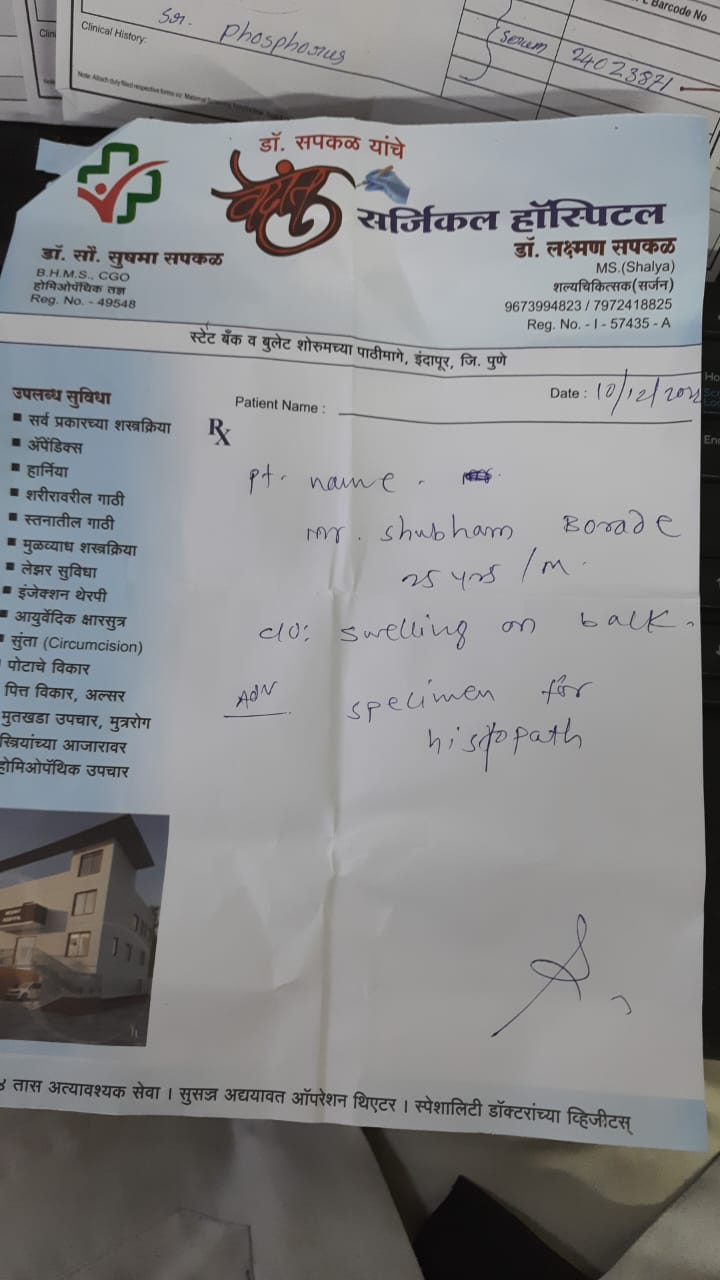 Barcode No
Clinical History:
Sr. Phosphorus
Serum 24023871
डॉ. सपकळ यांचे
वेदांत
सर्जिकल हॉस्पिटल
डॉ. सौ. सुषमा सपकळ
B.H.M.S., CGO
होमिओपॅथिक तज्ञ
Reg. No. - 49548
डॉ. लक्ष्मण सपकळ
MS.(Shalya)
शल्यचिकित्सक(सर्जन)
9673994823 / 7972418825
Reg. No. - I - 57435 - A
स्टेट बँक व बुलेट शोरुमच्या पाठीमागे, इंदापूर, जि. पुणे
Patient Name :
Date : 10/12/202
Rx
उपलब्ध सुविधा
सर्व प्रकारच्या शस्त्रक्रिया
ॲपेंडिक्स
हार्निया
शरीरावरील गाठी
स्तनातील गाठी
मुळव्याध शस्त्रक्रिया
लेझर सुविधा
इंजेक्शन थेरपी
आयुर्वेदिक क्षारसुत्र
सुंता (Circumcision)
पोटाचे विकार
पित्त विकार, अल्सर
मुतखडा उपचार, मुत्ररोग
स्त्रियांच्या आजारावर
होमिओपॅथिक उपचार
pt. name.
mr. Shubham Borade
25 yrs / m.
c/o: swelling on back.
Adv specimen for
histopath
४ तास अत्यावश्यक सेवा । सुसज्ज अद्ययावत ऑपरेशन थिएटर । स्पेशालिटी डॉक्टरांच्या व्हिजीटस्